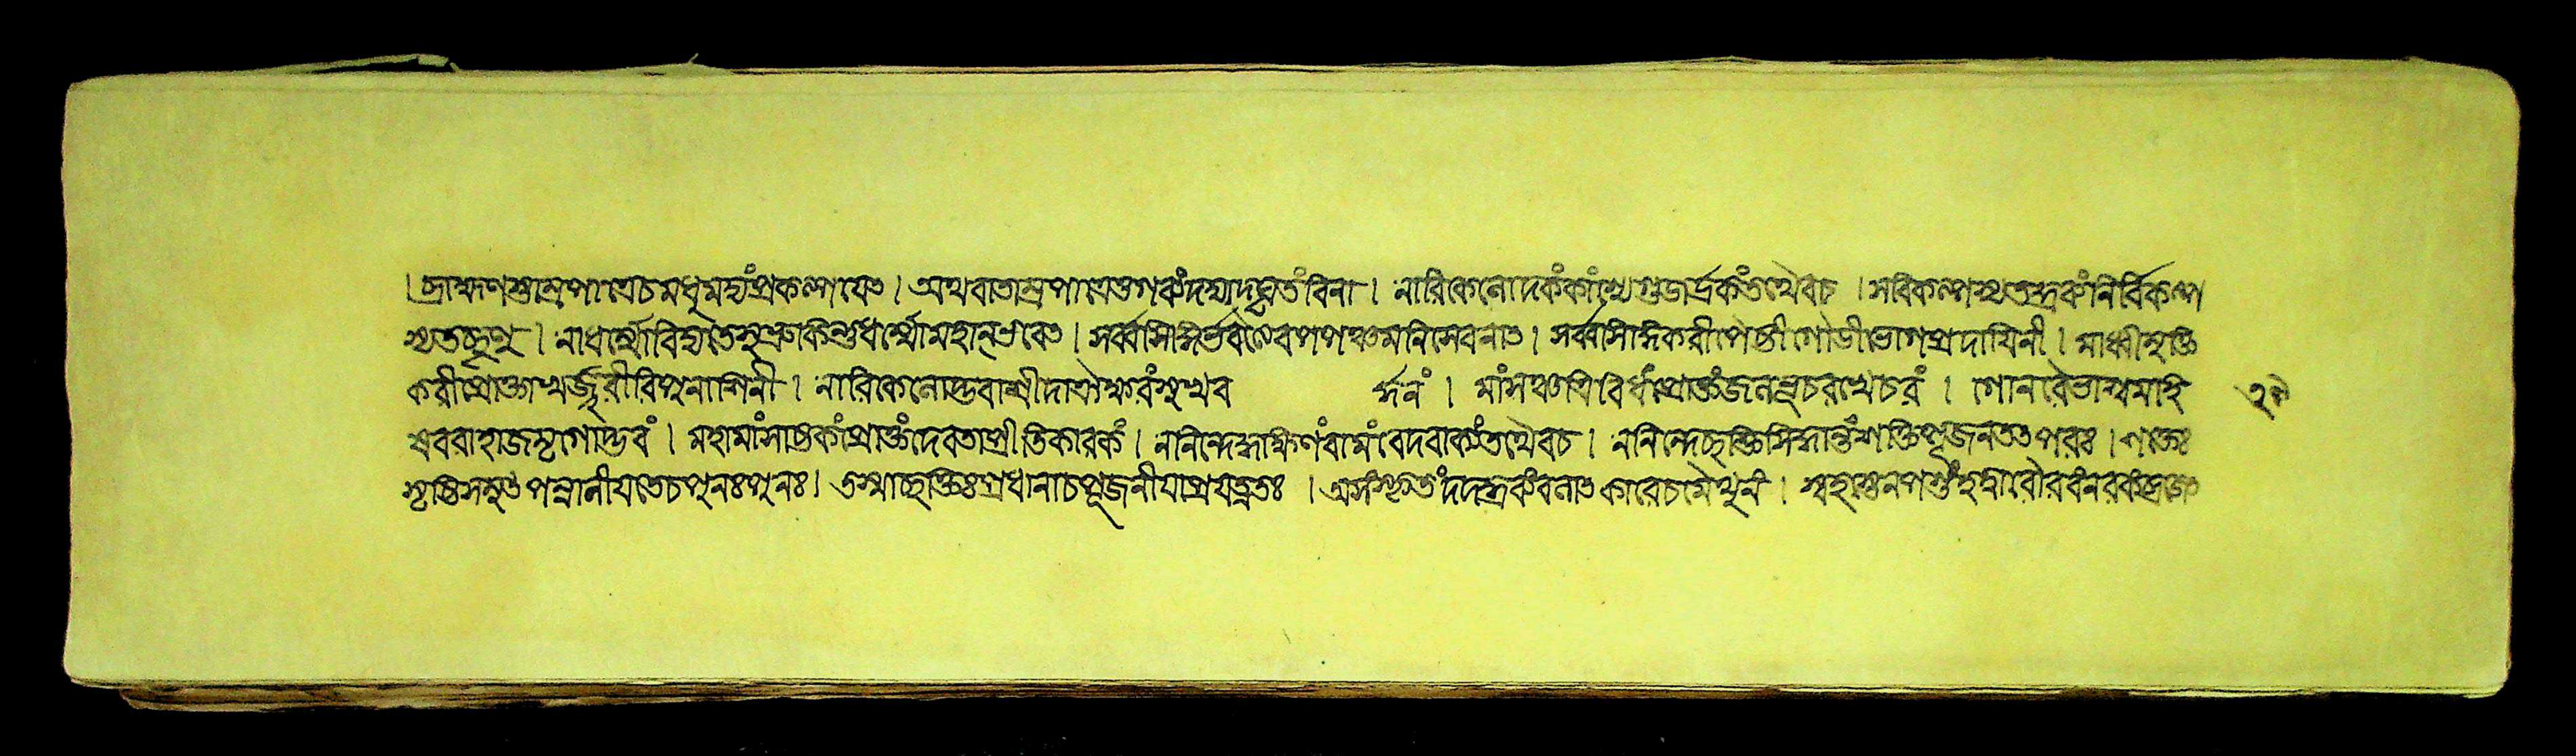 । ব্রাহ্মণস্তাম্রপাত্রেচমধুমদ্যংপ্রকল্পয়েৎ । অথবাতাম্রপাত্রেতুগব্যংদদ্যাদ্ঘৃতংবিনা । নারিকেলোদকংকাংস্যেগুডার্দ্রকংতথৈবচ । সবিকল্পস্যতদ্দ্রব্যংনির্বিকল্প
স্যতচ্ছৃণু । নাধর্ম্মোবিদ্যতেসুভ্রুকিন্তুধর্ম্মোমহান্ভবেৎ । সর্ব্বসিদ্ধির্ভবেদেবপঞ্চমনিসেবনাৎ । সর্ব্বসিদ্ধিকরীপৈষ্টীগৌডীভোগপ্রদায়িনী । মাধ্বীমুক্তি
করীপ্রোক্তাখর্জ্জূরীরিপুনাশিনী । নারিকেলোদ্ভবাশ্রীদাত্রৈক্ষবংসুখব র্দ্ধনং । মাংসঞ্চত্রিবিধংপ্রোক্তংজলভূচরখেচরং । গোনরেভাশ্বমাহি
ষবরাহাজমৃগোদ্ভবং । মহামাংসাষ্টকংপ্রোক্তংদেবতাপ্রীতিকারকং । ননিন্দেদ্দক্ষিণংবামংবেদবাক্যংতথৈবচ । ননিন্দেচ্ছক্তিসিদ্ধান্তংশক্তিপূজনতৎপরঃ । শক্তেঃ
সৃষ্টিসমুৎপন্নালীয়তেচপুনঃপুনঃ । তস্মাচ্ছক্তিঃপ্রধানাচপূজনীয়াপ্রযত্নতঃ । অসংস্কৃতংদদদ্দ্রব্যংবলাৎকারেচমৈথুনং । স্বহস্তেনপশুংহত্বারৌরবংনরকংব্রজেৎ
২৭